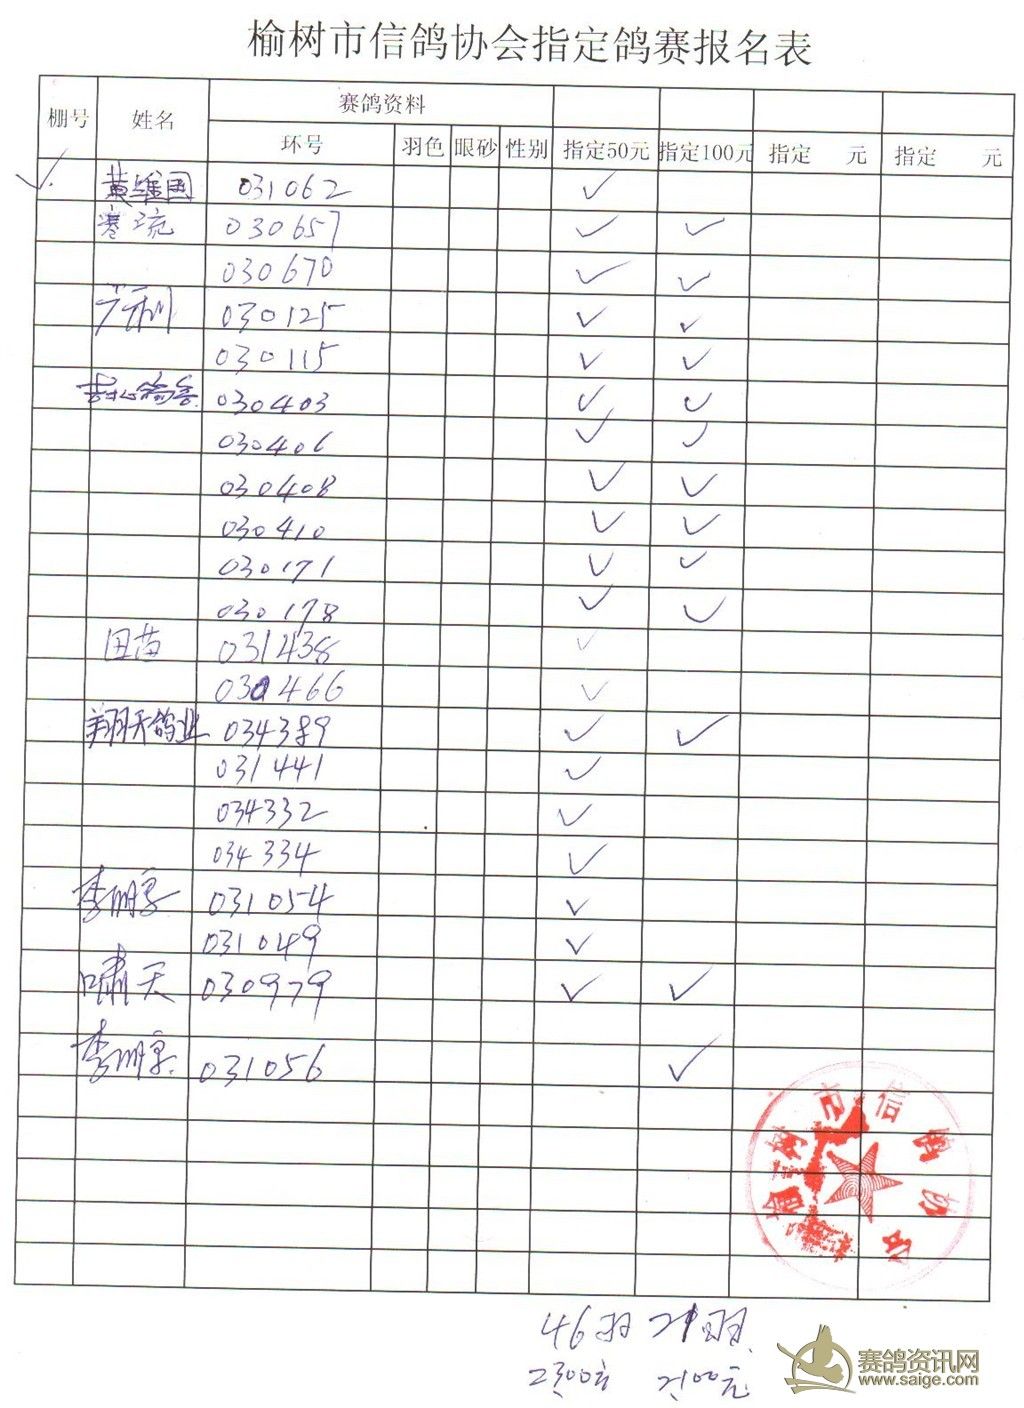 榆树市信鸽协会指定鸽赛报名表
棚号 姓名 赛鸽资料
环号 羽色 眼砂 性别 指定50元 指定100元 指定 元 指定 元
✓ 黄维国 031062 ✓
寒流 030657 ✓ ✓
030670 ✓ ✓
030125 ✓ ✓
030115 ✓ ✓
030403 ✓ ✓
030406 ✓ ✓
030408 ✓ ✓
030410 ✓ ✓
030171 ✓ ✓
030178 ✓ ✓
田苗 031438 ✓
466 ✓
翔天鸽业 034389 ✓ ✓
031441 ✓
034332 ✓
034334 ✓
李明 031054 ✓
031049 ✓
啸天 030979 ✓ ✓
李明 031056 ✓
榆树市信鸽协会
46羽 21羽
2300元 2100元
赛鸽资讯网
www.saige.com